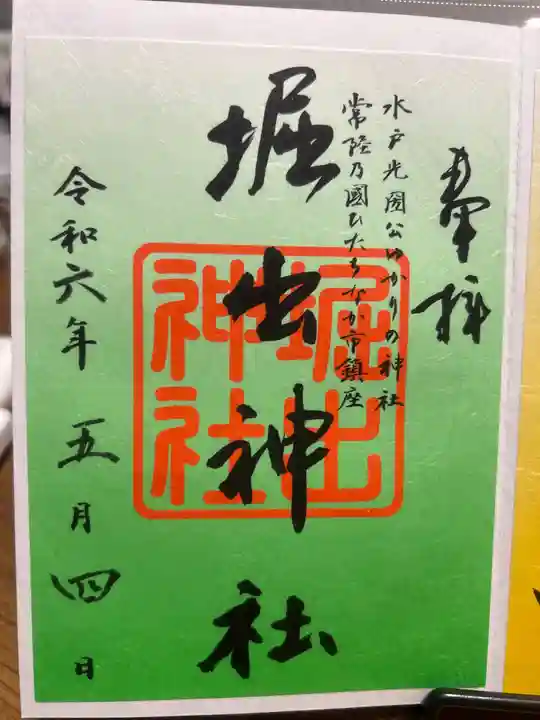 奉拝
水戸光圀公ゆかりの神社
常陸乃國ひたちなか市鎮座
堀出神社
堀出
神社
令和六年五月四日